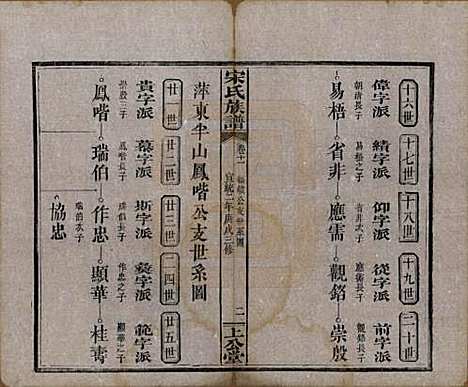 十六世 十七世 十八世 十九世 二十世
偉字派 績字派 仰字派 從字派 前字派
朝清長子 易梧之子 省非次子 應需長子 觀銘之子
易梧 省非 應需 觀銘 崇殷
宋氏族譜
卷十一
宣統二年庚戌三修
二
上公堂
萍東半山鳳喈公支世系圖
廿一世 廿二世 廿三世 二四世 廿五世
貴字派 慕字派 斯字派 範字派
崇殷三子 鳳喈長子 瑞伯長子 作忠之子 顯華之子
鳳喈 瑞伯 作忠 顯華 桂壽
瑞伯次子
協忠